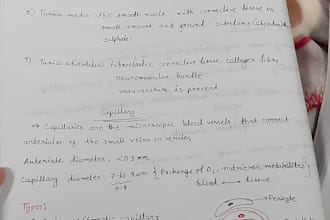 2) Tunica media: 75% smooth muscle with connective tissue in
small amount and ground substance (chondroitin
sulphate)
3) Tunica adventitia: Fibroelastic connective tissue, collagen fibre
neuromuscular bundle
vasavasorum is present.
Capillary
→ Capillaries are the microscopic blood vessels that connect
arterioles eg. the small veins or venules
Arteriole diameter: <0.3 mm
Capillary diameter: 7 to 9 um {Exchange of O2, nutrients, metabolites}
7-8 blood ↔ tissue
Types:
Pericyte
capillary